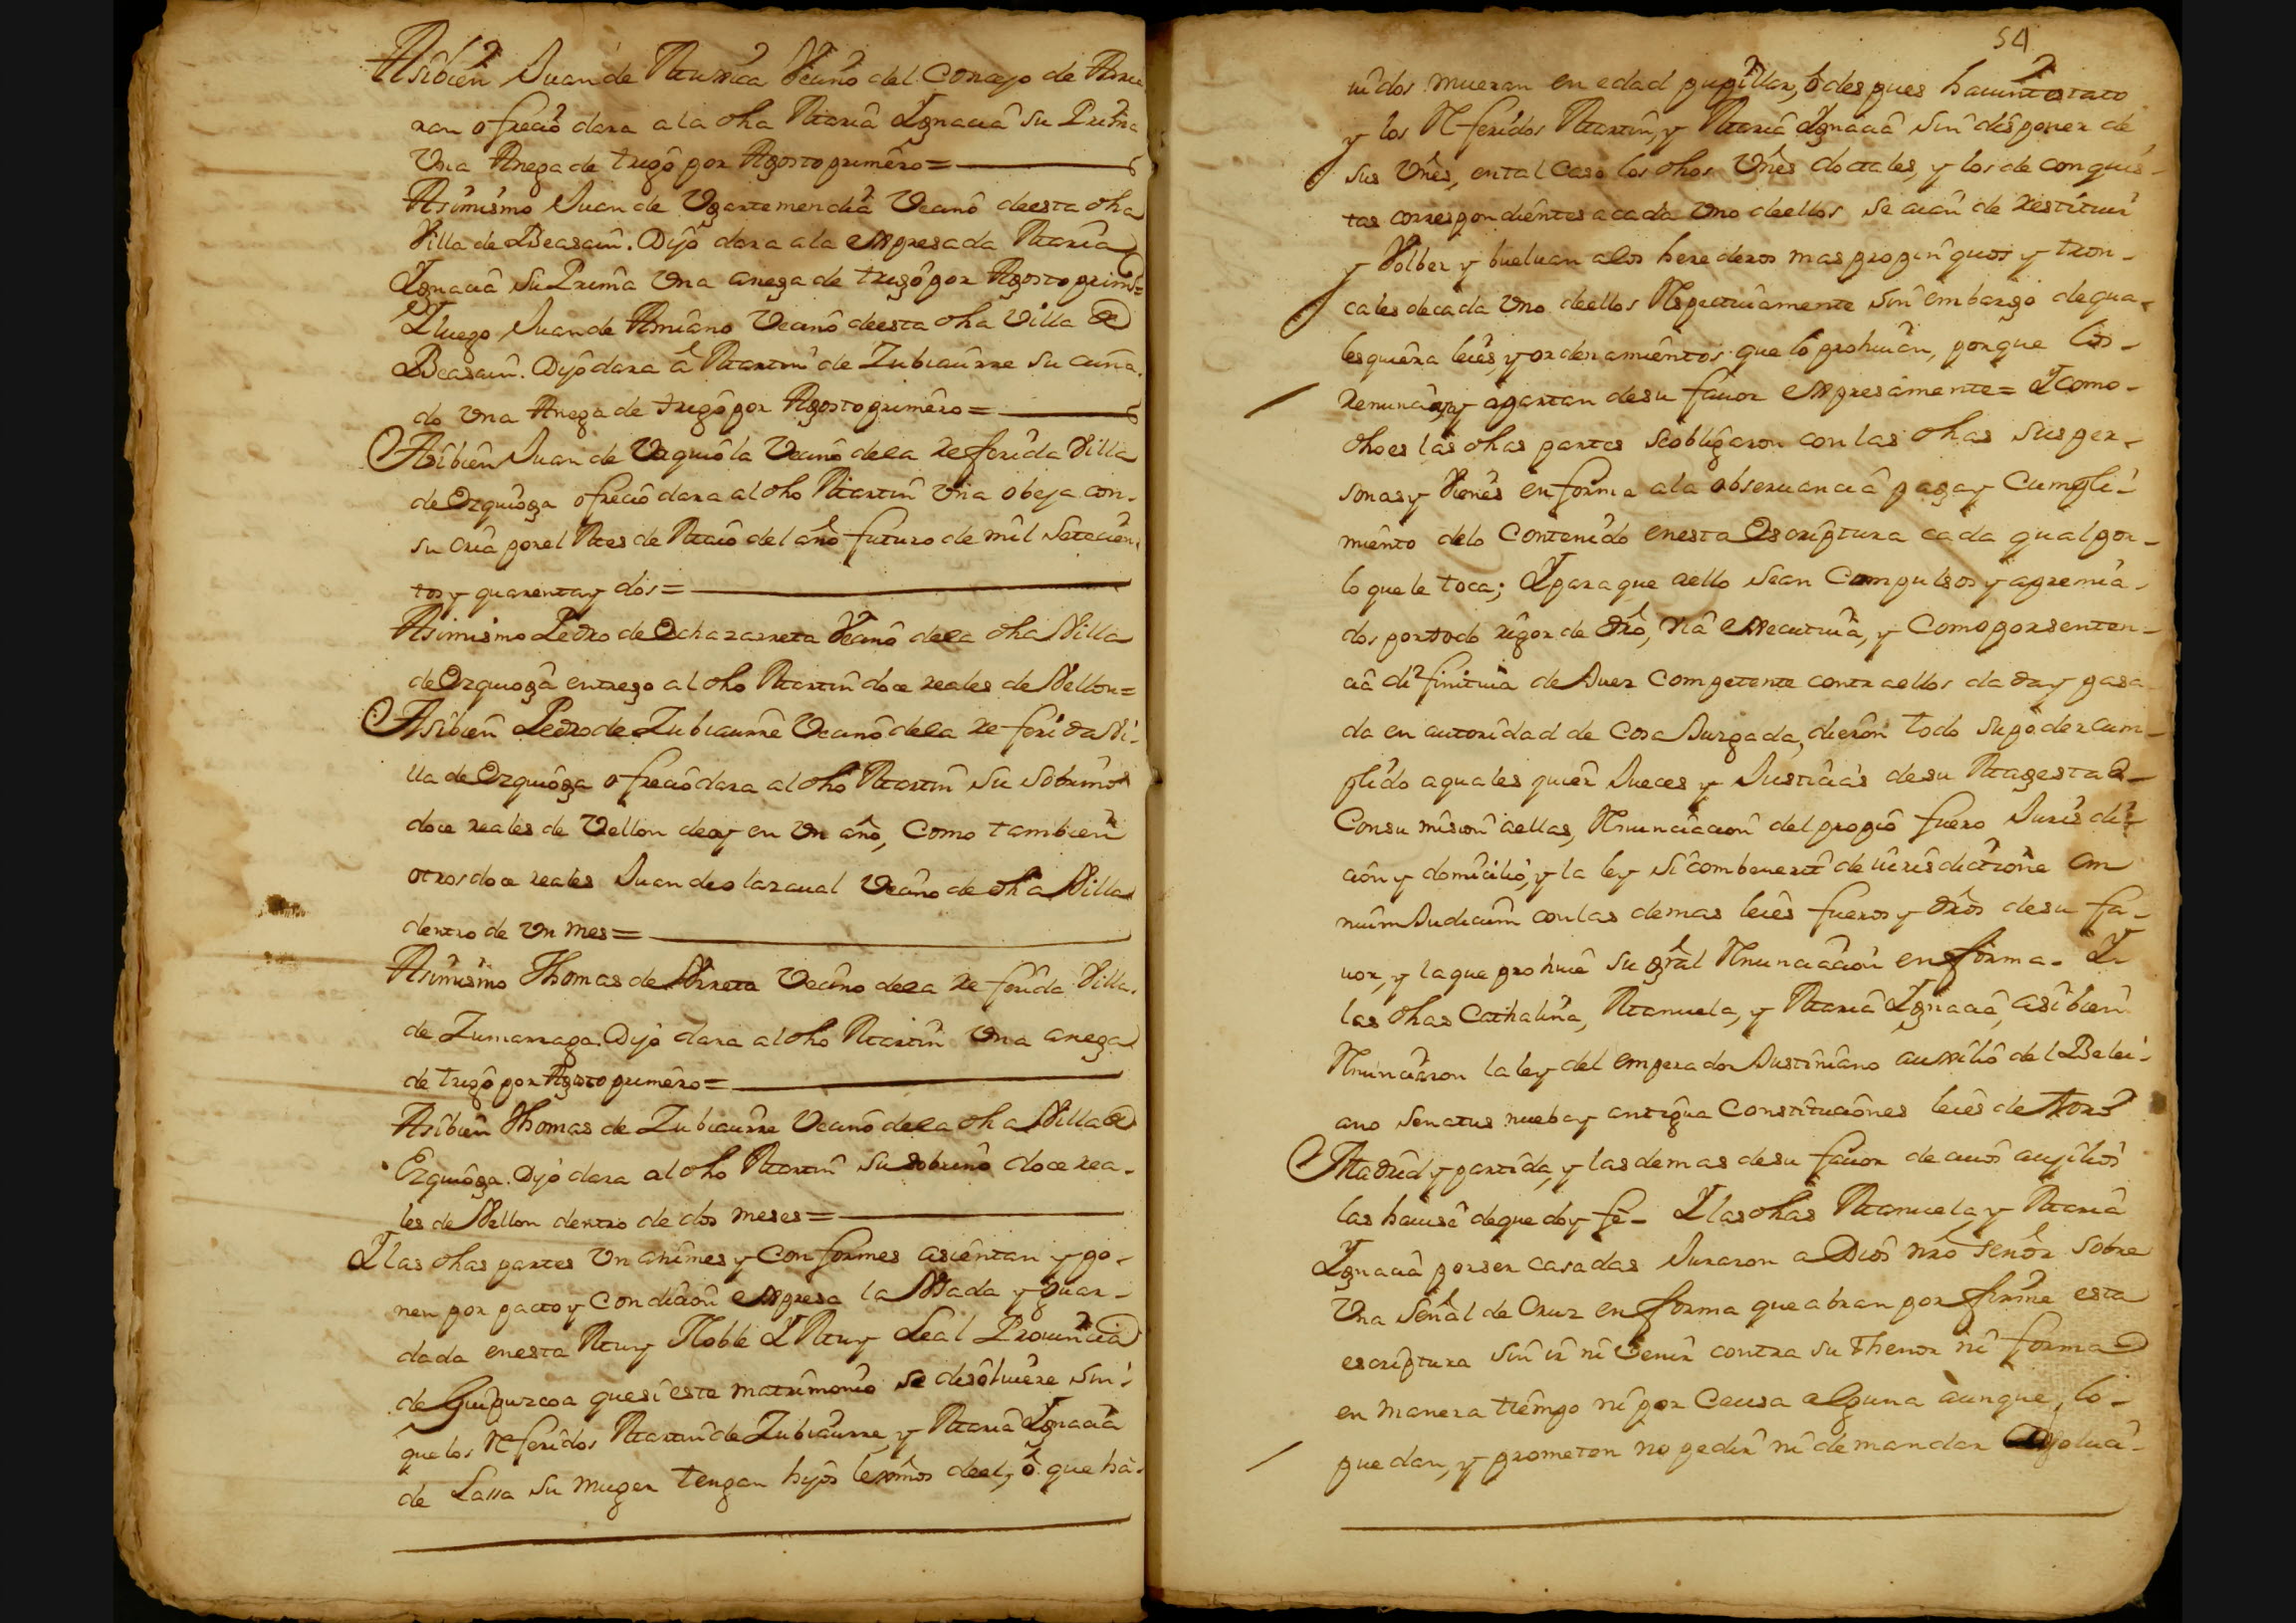 Asibien Juan de Murua Vecino del Concejo de Arria
ran ofrecio dara a la dha Maria Ignacia su Prima
Una Anega de trigo por Agosto primero =
Asimismo Juan de Ugartemendia Vecino de esta dha
Villa de Beasain. Dijo dara a la expresada Maria
Ignacia su Prima Una anega de trigo por Agosto primo=
Y luego Juan de Amiano Vecino de esta dha Villa de
Beasain. Dijo dara â Martin de Zubiaurre su cuña-
do Una Anega de trigo por Agosto primero =
Asibien Juan de Urquiola Vecino de la referida Villa
de Ezquioga ofrecio dara al dho Martin Una obeja con-
su cria por el Mes de Maio del año futuro de mil Setecien-
tos y quarenta y dos =
Asimismo Pedro de Echazarreta Vecino de la dha Villa
de Ezquioga entrego al dho Martin doce reales de Vellon=
Asibien Pedro de Zubiaurre Vecino de la referida Vi-
lla de Ezquioga ofrecio dara al dho Martin su sobrino
doce reales de Vellon de oy en Un año, Como tambien
otros doce reales Juan de olazaval Vecino de dha Villa
dentro de Un mes =
Asimismo Thomas de Vecino de la referida Villa
de Zumarraga. Dijo dara al dho Martin Una anega
de trigo por Agosto primero =
Asibien Thomas de Zubiaurre Vecino de la dha Villa de
Ezquioga. Dijo dara al dho Martin su sobrino doce rea-
les de Vellon dentro de dos meses =
Y las dhas partes Unanimes y Conformes asientan y po-
nen por pacto y Condicion expresa la Usada y guar-
dada en esta Muy Noble Y Muy Leal Provincia
de Guipuzcoa que si este matrimonio se disolviere sin-
que los referidos Martin de Zubiaurre, y Maria Ignacia
de Lassa su muger tengan hijos lexmos deel, ô que ha-
54
vidos mueran en edad pupillar, ô despues havintestato
y los Referidos Martin, y Maria Ignacia sin disponer de
sus Vnês, en tal Caso los dhos Vnês dotales, y los de conquis-
tas correspondientes a cada Uno de ellos se aian de restituir
y Volber y buelvan a los herederos mas propinquos y tron-
cales de cada Uno de ellos Respectivamente sin embargo de qua-
lesquiera leies, y ordenamientos que lo prohivan, porque los-
renuncian, y apartan de su favor expresamente= Y como-
dho es las dhas partes se obligaron con las dhas sus per-
sonas y Vienes en forma a la observancia paga y Cumpli-
miento de lo Contenido en esta Escriptura cada qual por-
lo que le toca; Y para que a ello sean Compulsos y apremia-
dos por todo rigor de dro, via executiva, y Como por senten-
cia difinitiva de Juez Competente contra ellos dada y pasa-
da en autoridad de Cosa Juzgada, dieron todo su poder cum-
plido a quales quier Jueces y Justicias de su Magestad-
Con sumision a ellas, Renunciacion del propio fuero Jurisdi-
cion y domicilio, y la ley si combenerit de iurisdictione om
nium Judicum con las demas leies fueros y dros de su fa-
vor, y la que prohive su gral Renunciacion en forma- Y-
las dhas Cathalina, Manuela, y Maria Ignacia, asibien
Renunciaron la ley del emperador Justiniano auxilio del Belei-
ano Senatus nueba y antigua Constituciones leies de toro
Madrid y partida, y las demas de su favor de cuios auxilios
las havise de que doy fe- Y las dhas Manuela, y Maria
Ignacia por ser casadas Juraron a Dios nro señor sobre
Una señal de Cruz en forma que abran por firme esta
escriptura sin ir ni venir contra su Thenor ni forma
en manera tiempo ni por Causa alguna aunque lo-
puedan, y prometen no pedir ni demandar absoluci-